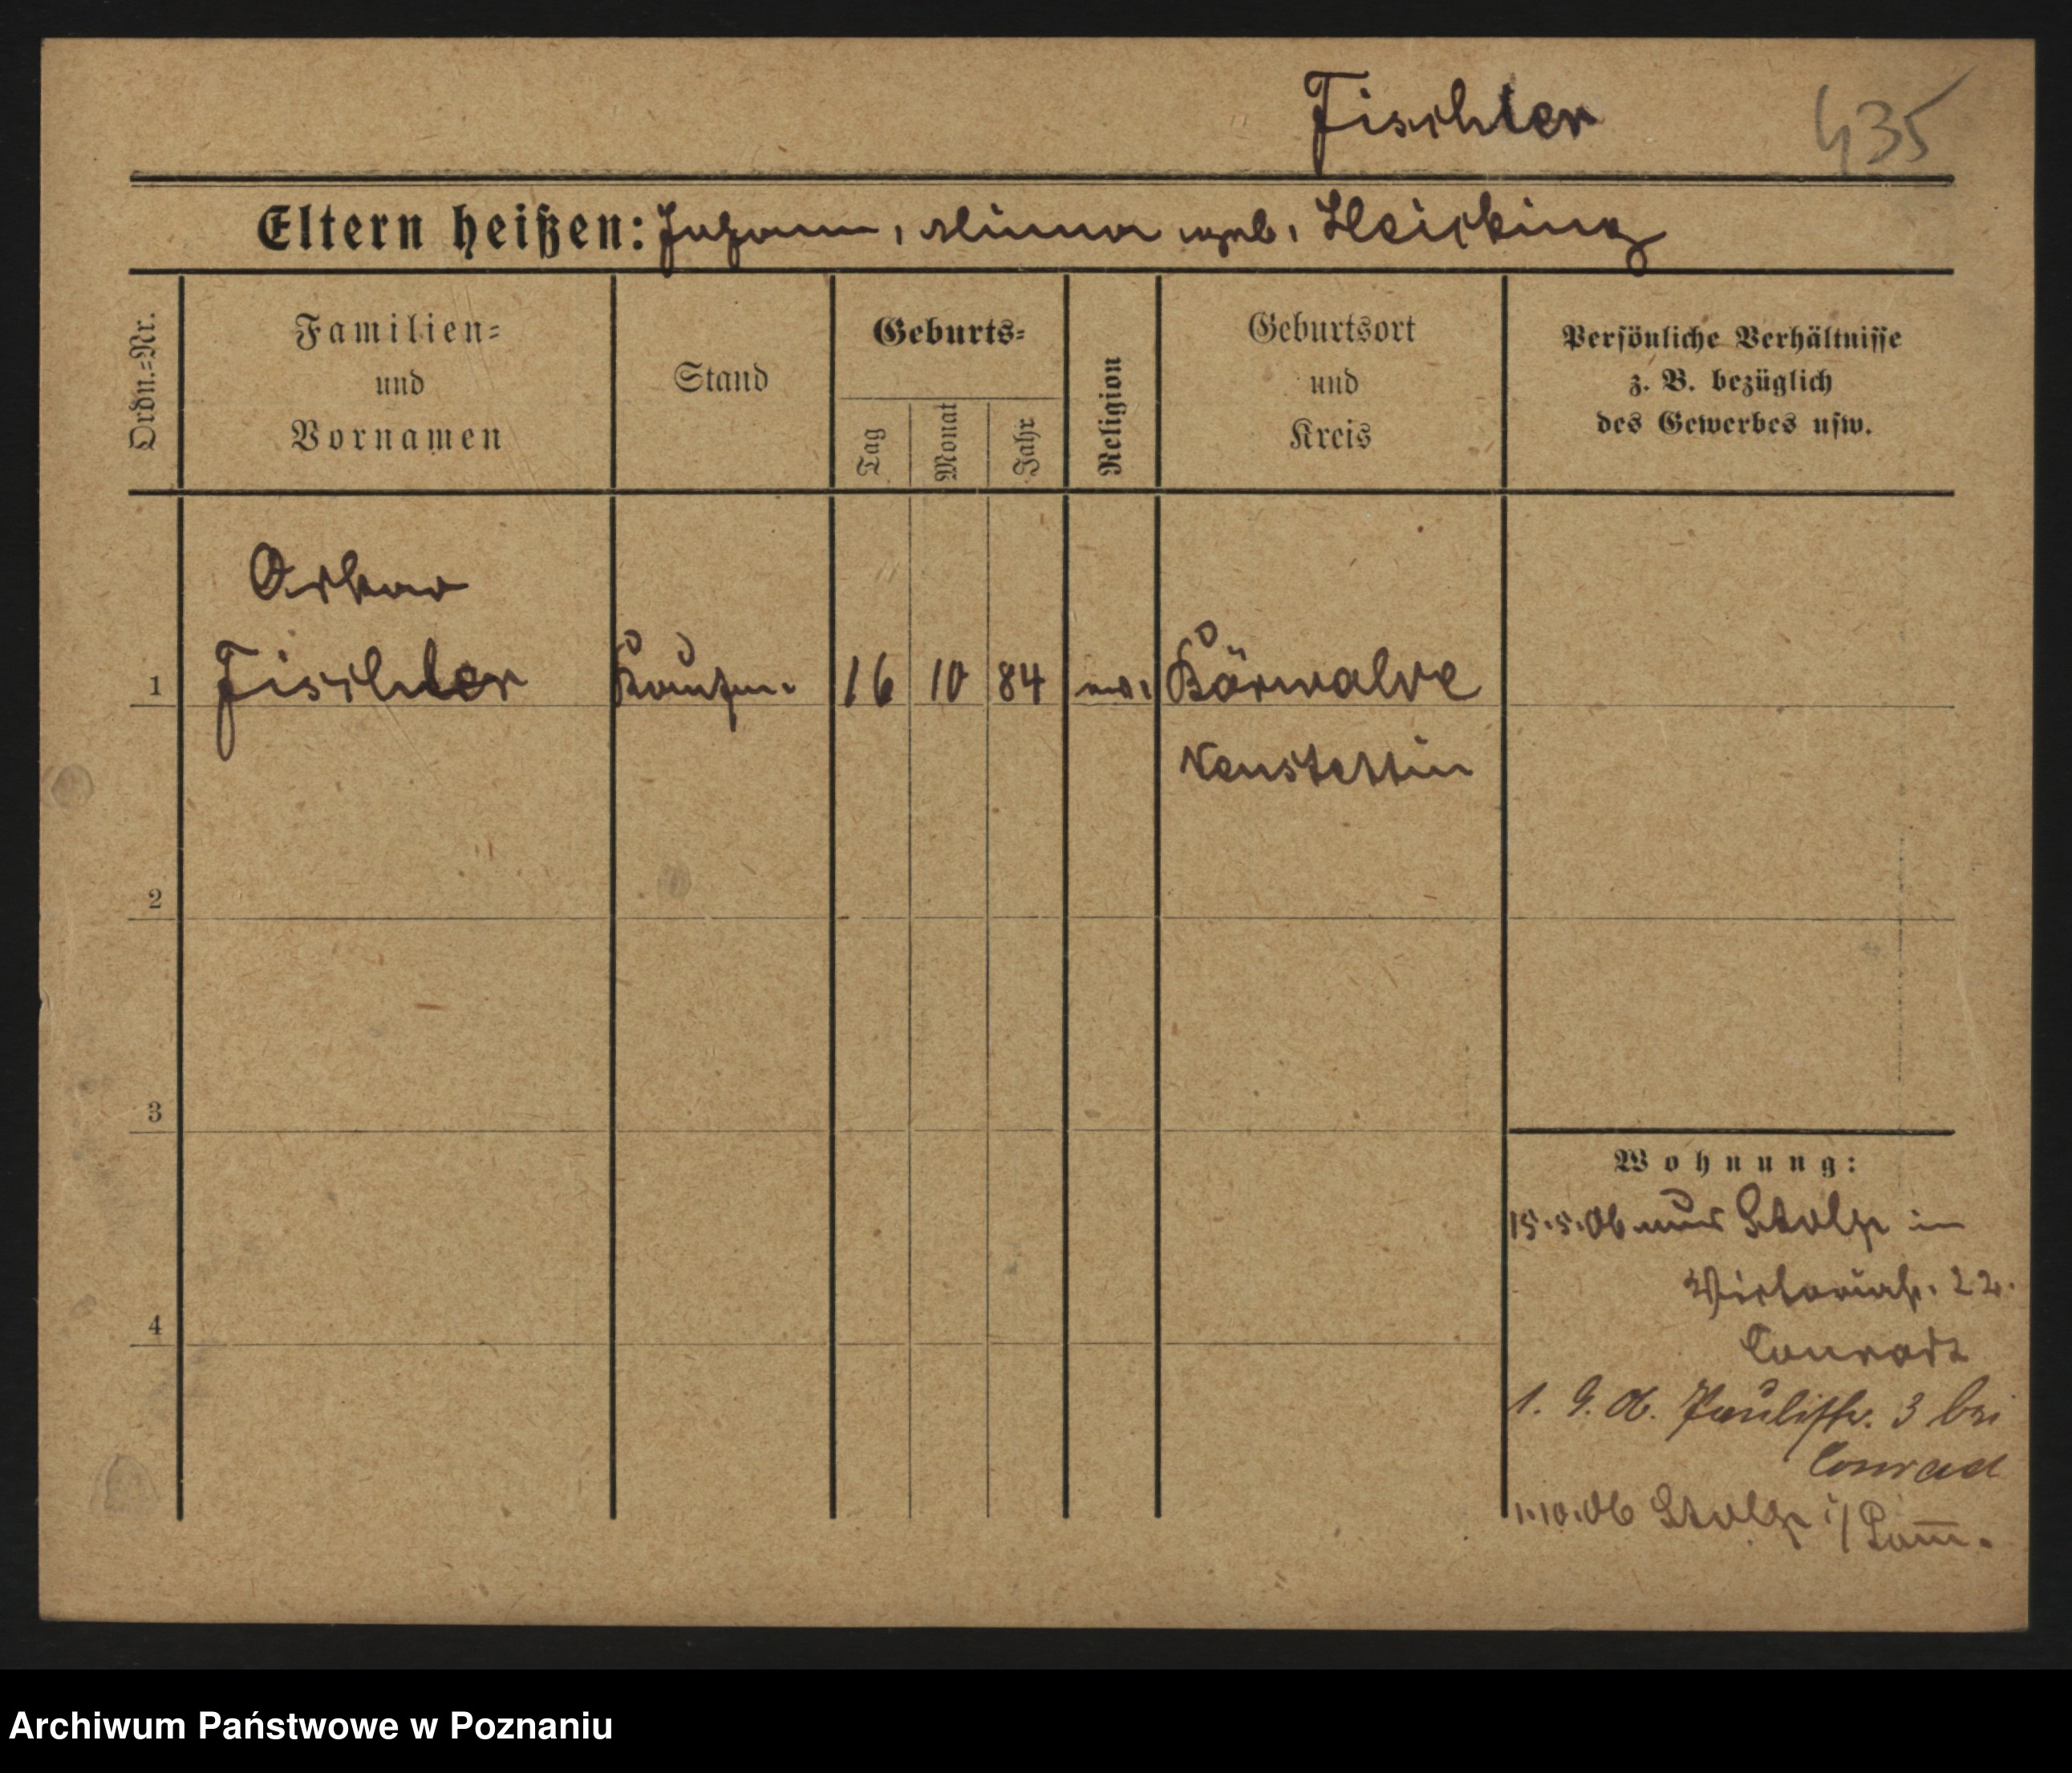 Fischler
435
Eltern heißen: Johann, Minna geb.
Ordn.=Nr.
Familien=
und
Vornamen
Stand
Geburts=
Tag
Monat
Jahr
Religion
Geburtsort
und
Kreis
Persönliche Verhältnisse
z. B. bezüglich
des Gewerbes usw.
Oskar
1 Fischler Kaufm. 16 10 84 ev. Bärwalde
Neustettin
2
3
4
Wohnung:
15.5.06 aus Stolp in
Victoriastr. 22.
Conradt
1. 9. 06. Paulistr. 3 bei
Conrad
1.10.06 Stolp i/Pom̅.
Archiwum Państwowe w Poznaniu